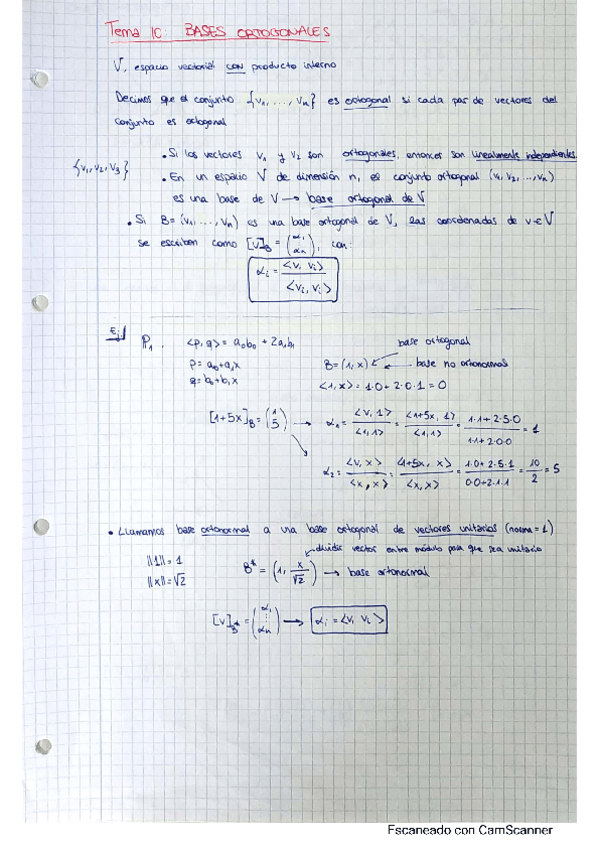 Tema 10: BASES ORTOGONALES
V, espacio vectorial con producto interno
Decimos que el conjunto {v₁, ..., vₙ} es ortogonal si cada par de vectores del
conjunto es octogonal
{v₁, v₂, v₃}
• Si los vectores v₁ y v₂ son ortogonales, entonces son linealmente independientes.
• En un espacio V de dimensión n, el conjunto ortogonal (v₁, v₂, ..., vₙ)
es una base de V → base ortogonal de V
• Si B = (v₁, ..., vₙ) es una base ortogonal de V, las coordenadas de v∈V
se escriben como [v]_B = (α₁ ⋮ αₙ), con:
αᵢ = <v, vᵢ> / <vᵢ, vᵢ>
Ej P₁. <p, q> = a₀b₀ + 2a₁b₁
base ortogonal
p = a₀ + a₁x
B = (1, x) ← base no ortonormal
q = b₀ + b₁x
<1, x> = 1·0 + 2·0·1 = 0
[1+5x]_B = (1 5) → α₁ = <v, 1> / <1, 1> = <1+5x, 1> / <1, 1> = 1·1 + 2·5·0 / 1·1 + 2·0·0 = 1
α₂ = <v, x> / <x, x> = <1+5x, x> / <x, x> = 1·0 + 2·5·1 / 0·0 + 2·1·1 = 10 / 2 = 5
• Llamamos base ortonormal a una base ortogonal de vectores unitarios (norma = 1)
dividir vector entre módulo para que sea unitario
||1|| = 1
B* = (1, x/√2) → base ortonormal
||x|| = √2
[v]_B* = (α₁ ⋮ αₙ) → αᵢ = <v, vᵢ>
Escaneado con CamScanner